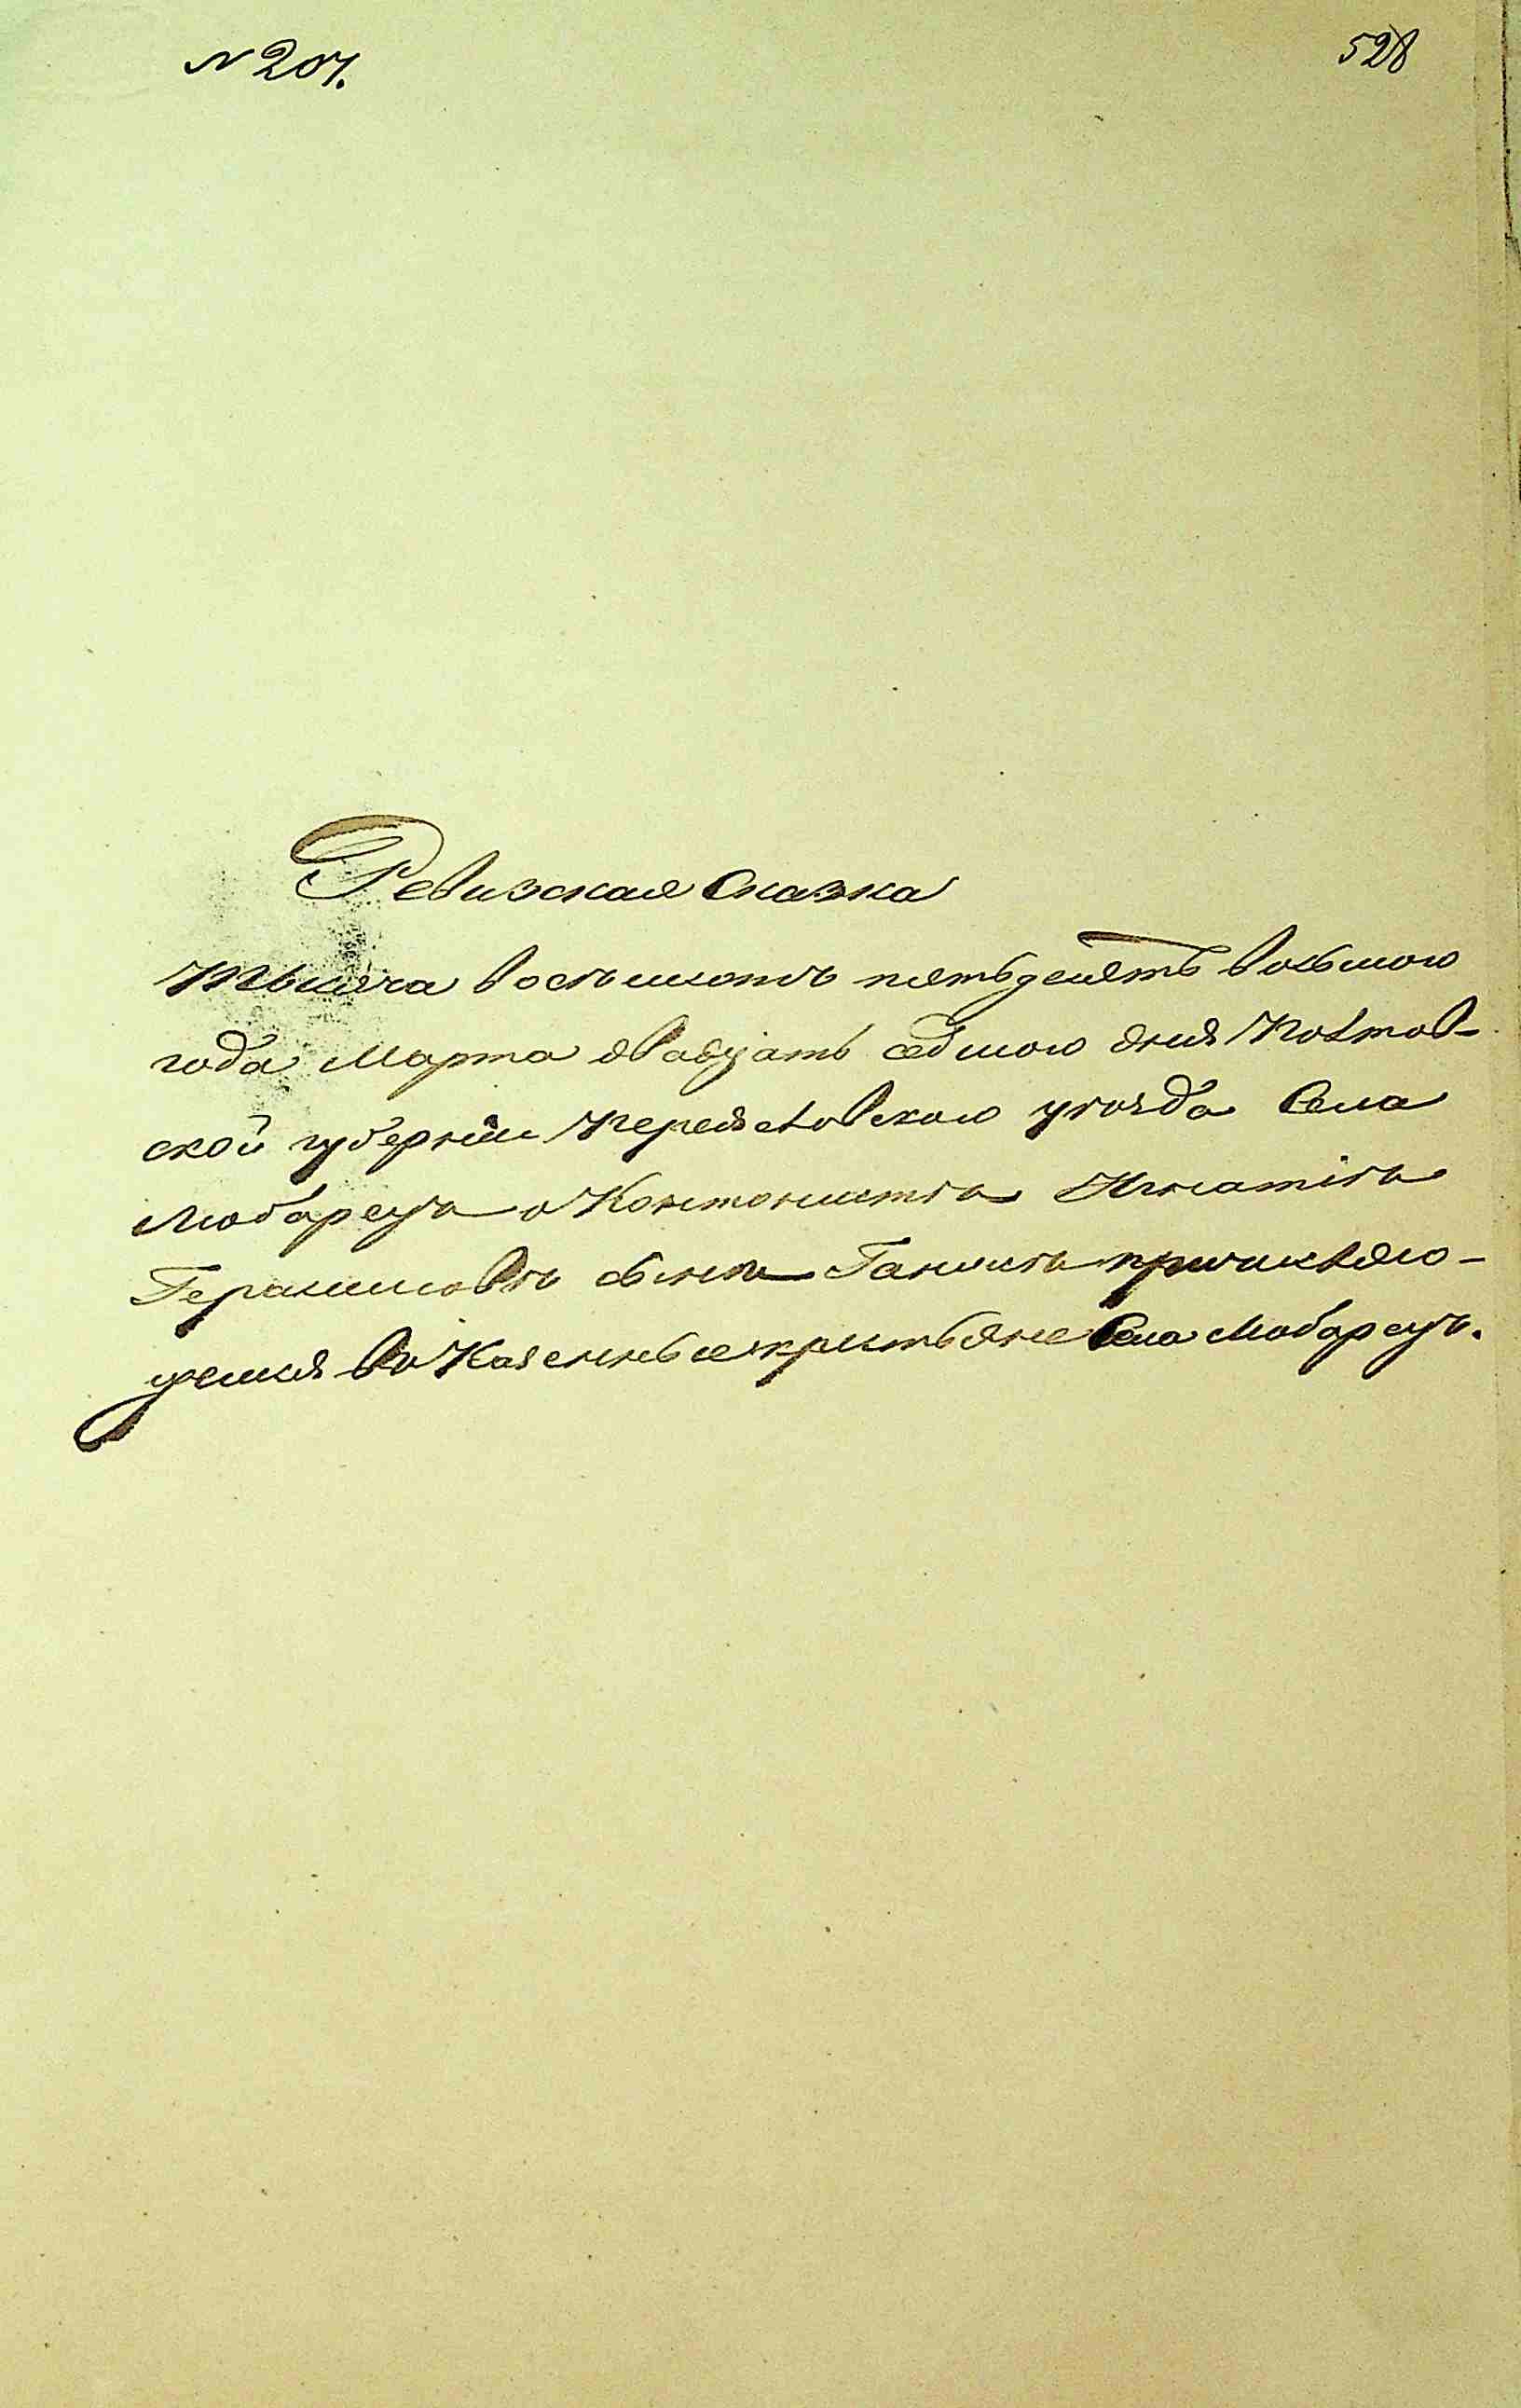 № 207.
528
Ревизская Сказка
Тысяча восемьсотъ пятьдесятъ восьмого
года Марта двадцать седмого дня Полтав-
ской губерніи Переяславского уѣзда Села
Любарецъ о Кантонистѣ Игнатіѣ
Герасимовѣ сынѣ причисляю-
щемся въ Казенные крестьяне Села Любарецъ.